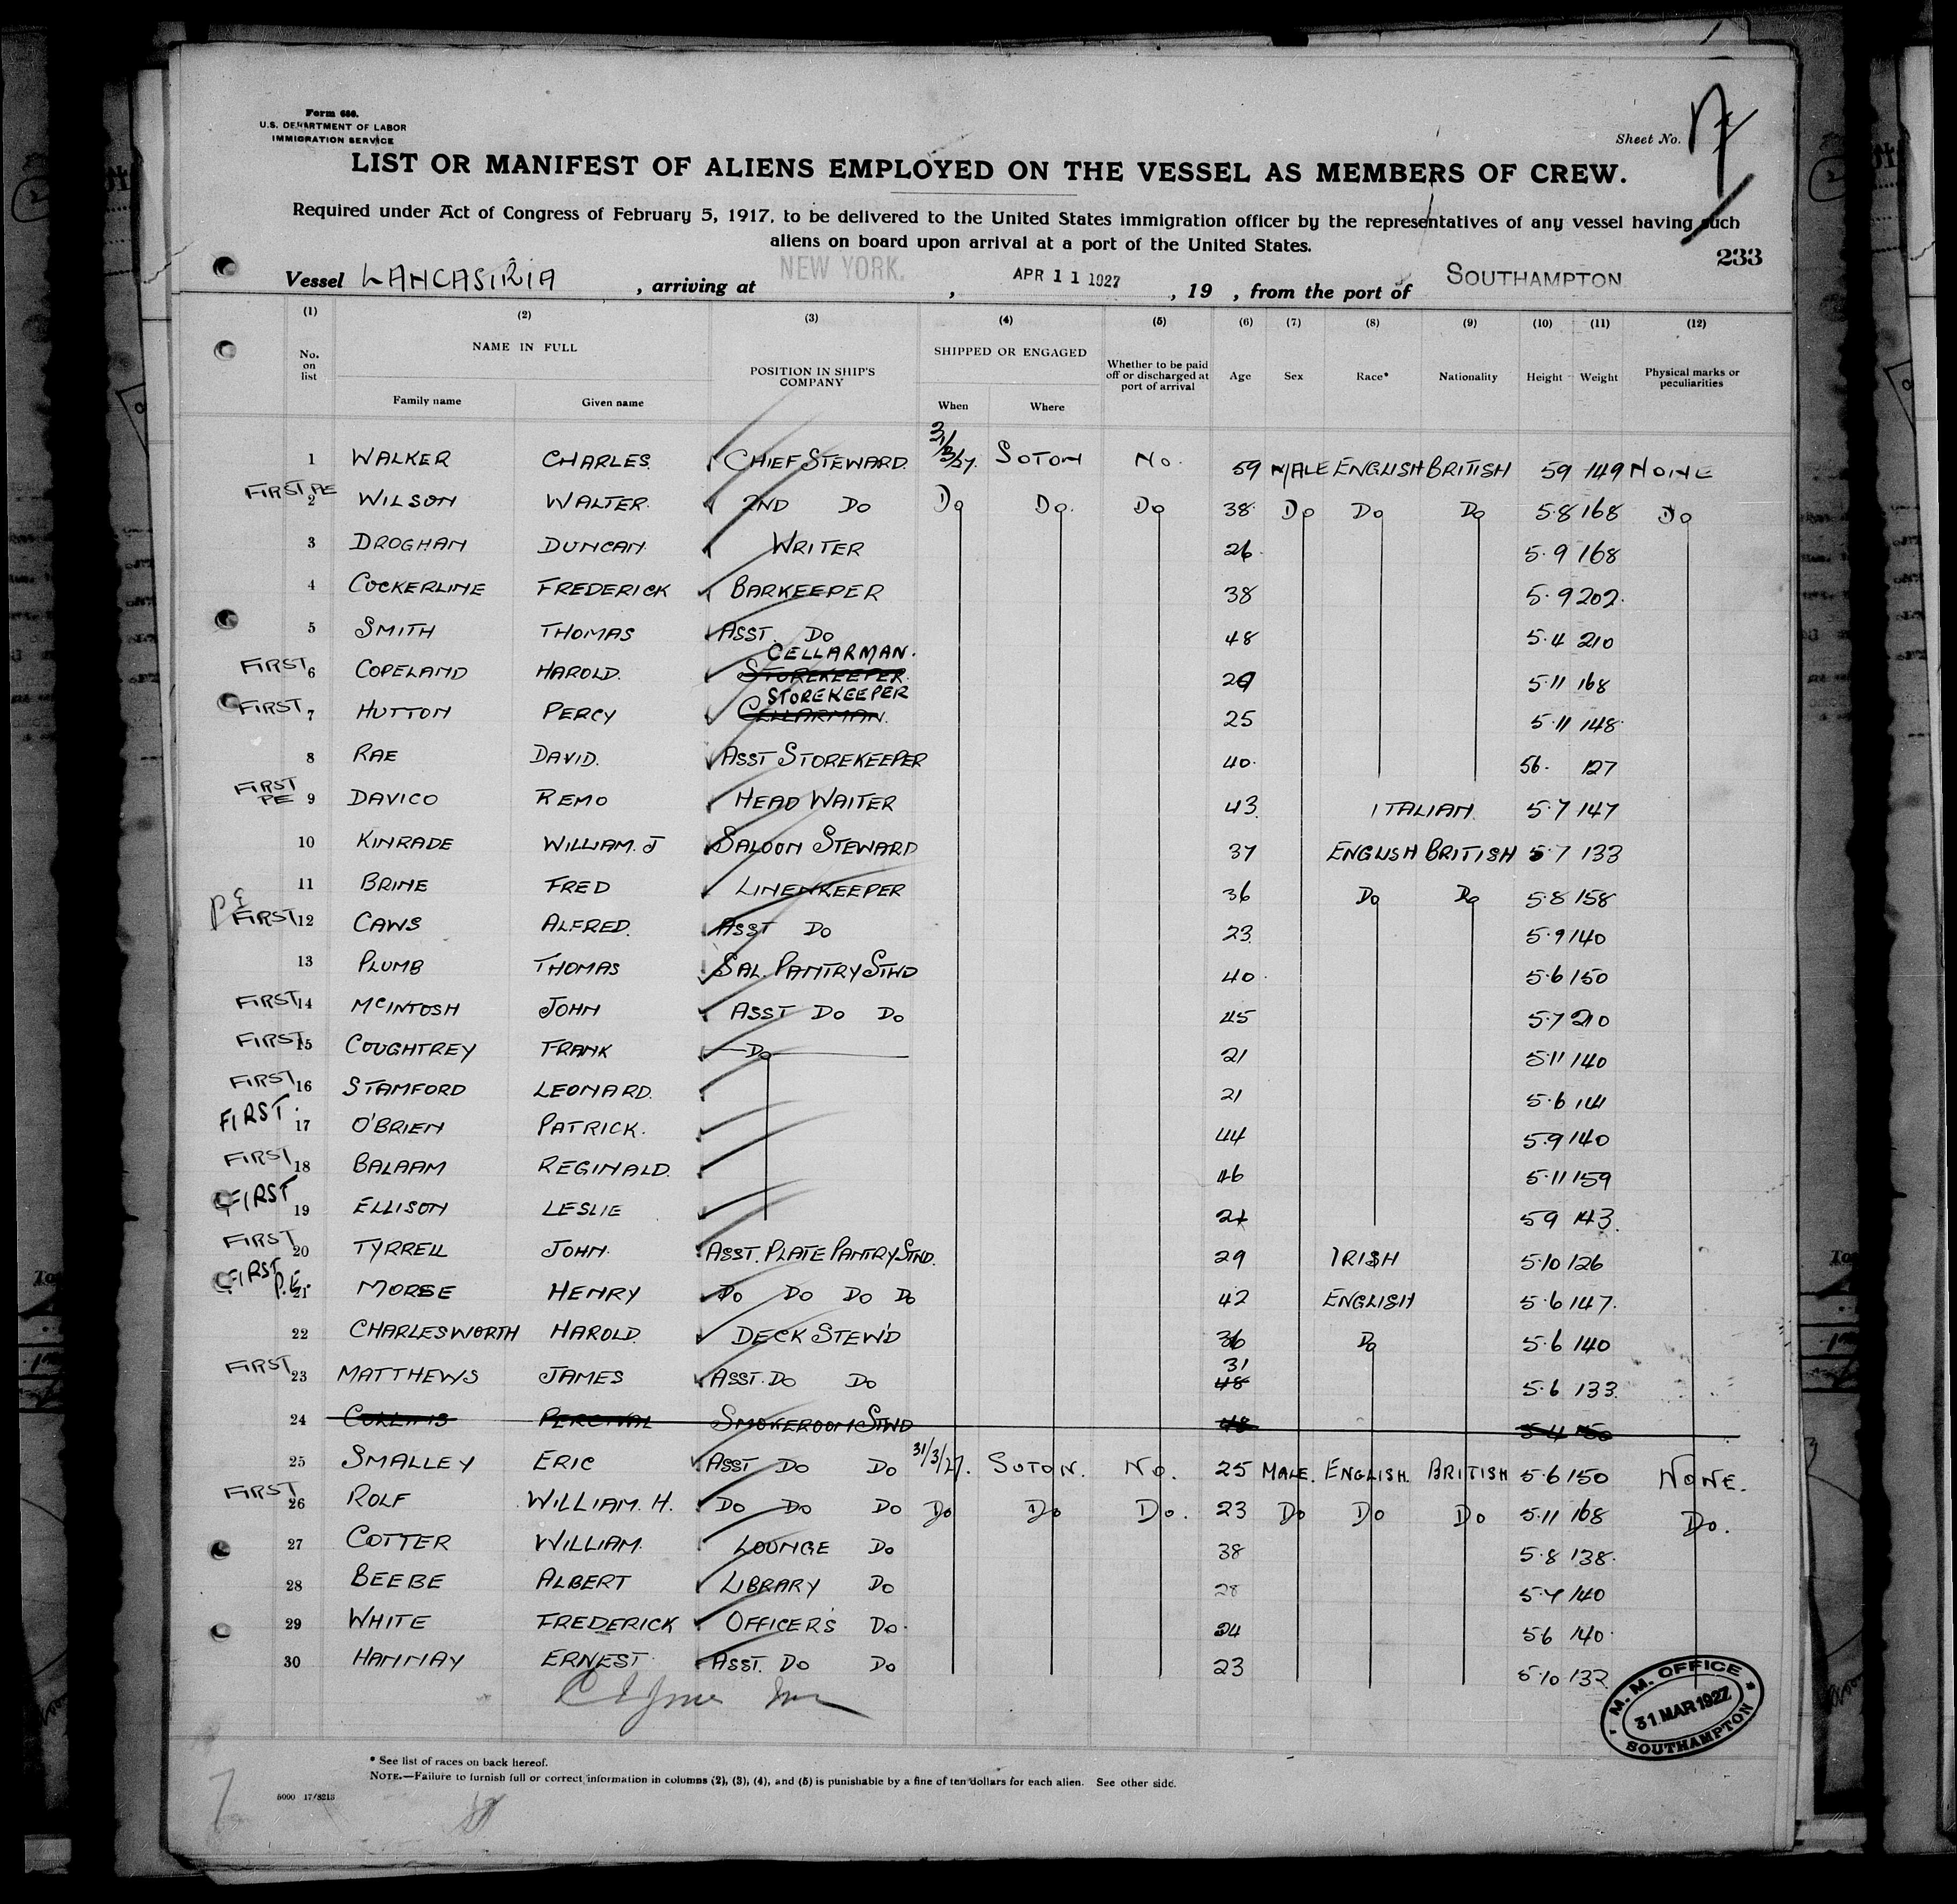 Form 680.
U.S. DEPARTMENT OF LABOR
IMMIGRATION SERVICE
Sheet No.
LIST OR MANIFEST OF ALIENS EMPLOYED ON THE VESSEL AS MEMBERS OF CREW.
Required under Act of Congress of February 5, 1917, to be delivered to the United States immigration officer by the representatives of any vessel having such
aliens on board upon arrival at a port of the United States.
233
Vessel LANCASTRIA, arriving at NEW YORK., APR 11 1927, 19 , from the port of SOUTHAMPTON
(1) (2) (3) (4) (5) (6) (7) (8) (9) (10) (11) (12)
No. on list NAME IN FULL POSITION IN SHIP'S COMPANY SHIPPED OR ENGAGED Whether to be paid off or discharged at port of arrival Age Sex Race* Nationality Height Weight Physical marks or peculiarities
Family name Given name When Where
1 WALKER CHARLES. CHIEF STEWARD. 31/3/27. SOTON No. 59 MALE ENGLISH BRITISH 59 149 NONE
FIRST PE 2 WILSON WALTER. 2ND Do Do Do. Do 38 Do Do Do 5.8 168 Do
3 DROGHAN DUNCAN. WRITER 26. 5.9 168
4 COCKERLINE FREDERICK BARKEEPER 38 5.9 202.
5 SMITH THOMAS ASST. Do 48 5.4 210
FIRST 6 COPELAND HAROLD. CELLARMAN. STOREKEEPER. 29 5.11 168
FIRST 7 HUTTON PERCY STOREKEEPER CELLARMAN. 25 5.11 148
8 RAE DAVID. ASST STOREKEEPER 40. 56. 127
FIRST PE 9 DAVICO REMO HEAD WAITER 43. ITALIAN. 5.7 147
10 KINRADE WILLIAM. J SALOON STEWARD 37 ENGLISH BRITISH 5.7 133
11 BRINE FRED LINENKEEPER 36 Do Do 5.8 158
PE FIRST 12 CAWS ALFRED. ASST Do 23. 5.9 140
13 PLUMB THOMAS SAL. PANTRY STWD 40. 5.6 150
FIRST 14 McINTOSH JOHN ASST Do Do 45 5.7 210
FIRST 15 COUGHTREY FRANK Do 21 5.11 140
FIRST 16 STAMFORD LEONARD. 21 5.6 141
FIRST. 17 O'BRIEN PATRICK. 44 5.9 140
FIRST 18 BALAAM REGINALD. 46 5.11 159
FIRST 19 ELLISON LESLIE 21 59 143.
FIRST 20 TYRRELL JOHN. ASST. PLATE PANTRY STWD. 29 IRISH 5.10 126
FIRST P.E. 21 MORSE HENRY Do Do Do Do 42 ENGLISH 5.6 147.
22 CHARLESWORTH HAROLD. DECK STEW'D 36 Do 5.6 140
FIRST 23 MATTHEWS JAMES ASST. Do Do 31 48 5.6 133.
24 COLLINS PERCIVAL SMOKEROOM STWD 48 5.4 150
25 SMALLEY ERIC ASST Do Do 31/3/27. SOTON. No. 25 MALE. ENGLISH. BRITISH 5.6 150 NONE.
FIRST 26 ROLF WILLIAM. H. Do Do Do Do Do Do. 23 Do Do Do 5.11 168 Do.
27 COTTER WILLIAM. LOUNGE Do 38 5.8 138.
28 BEEBE ALBERT LIBRARY Do 28 140
29 WHITE FREDERICK OFFICERS Do. 24 5.6 140.
30 HANNAY ERNEST. ASST. Do Do 23 5.10 132
M. M. OFFICE
31 MAR 1927
SOUTHAMPTON
* See list of races on back hereof.
NOTE.—Failure to furnish full or correct information in columns (2), (3), (4), and (5) is punishable by a fine of ten dollars for each alien. See other side.
5000 17/8213